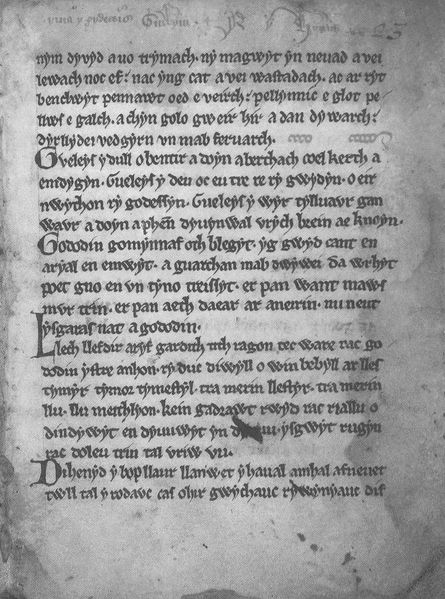 nym dyvyd a uo trymach. ny magwyt yn neuad a vei
lewach noc ef. nac yng cat a vei wastadach. ac ar ryt
benclwyt pennawt oed e veirch. pellynnic e glot pe
llws e galch. a chyn golo gweir hir a dan dywarch.
dyrllydei vedgyrn un mab feruarch.
Gueleys y dull o bentir a doyn aberthach coel kerth a
emdygyn. Gueleys y deu oc eu tre re ry gwydyn. o eir
nwython ry godessyn. Gueleys y wyr tylluavr gan
wavr a doyn a phen dyuynwal vrych brein ae knoyn.
Gododin gomynnaf oth blegyt. yg gwyd cant en
aryal en emwyt. a guarchan mab dwywei da wrhyt
poet gno en vn tyno treissyt. er pan want maws
mvr trin. er pan aeth daear ar aneirin. nu neut
ysgaras nat a gododin.
Llech llefdir aryf gardith tith ragon tec ware rac go
dodin ystre anhon. ry duc diwyll o win bebyll ar lles
tymyr tymor tymestyl. tra merin llestyr. tra merin
llu. llu meithlyon. kein gadrawt rwyd rac riallu o
dindywyt en dyuuwyt yn ysgwyt rugyn
rac doleu trin tal vriw vu.
Dihenyd y bop llaur llanwet y haual amhal afneuet
twll tal y rodawc cas ohir gwychauc rywynyauc dif